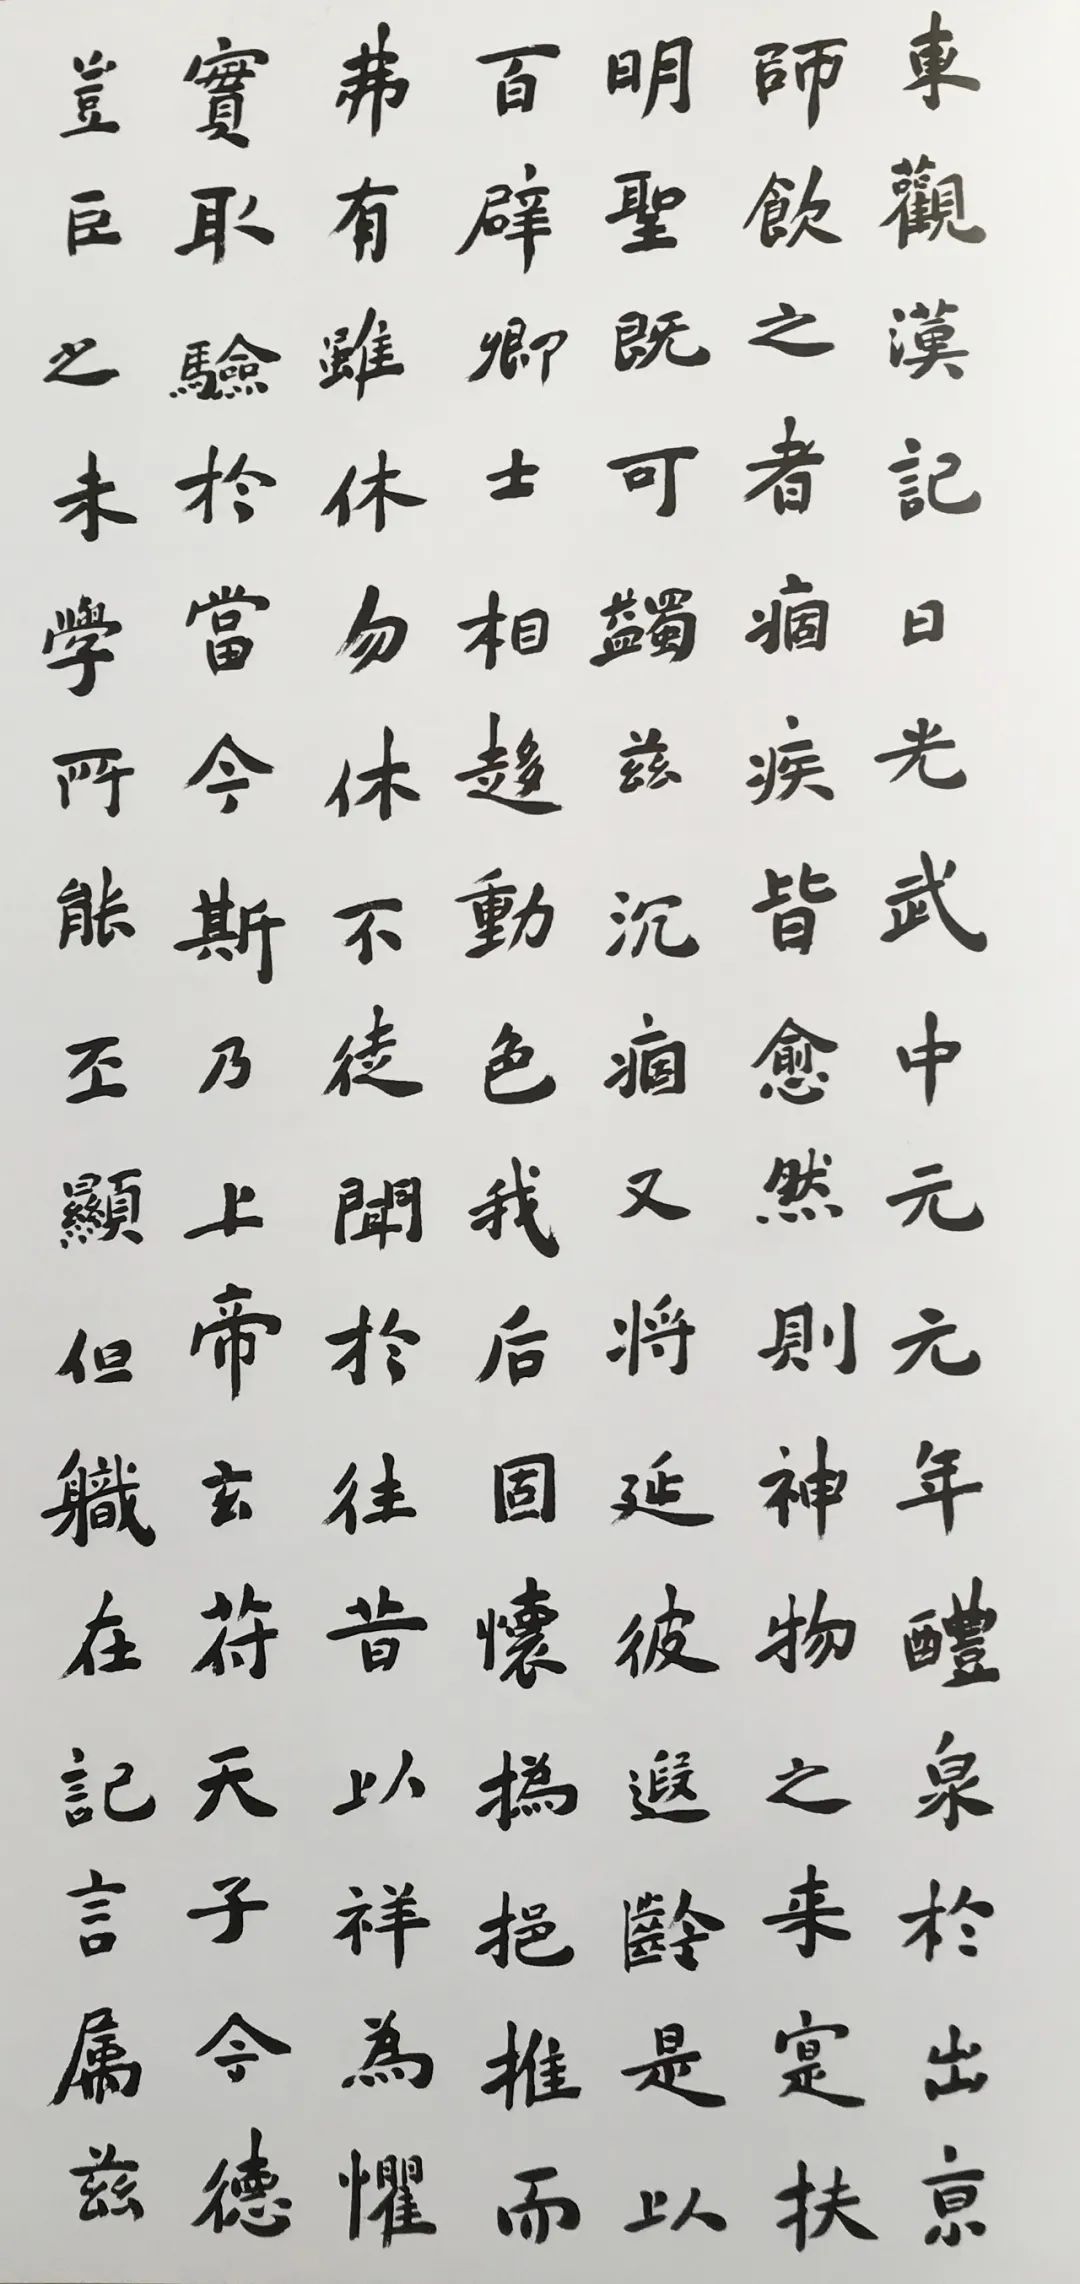 東觀漢記日光武中元元年醴泉於出亰
師飲之者痼疾皆愈然則神物之来寔扶
明聖既可蠲兹沉痼又将延彼遐齡是以
百辟卿士相趍動色我后固懷撝挹推而
弗有雖休勿休不徒聞於往昔以祥為懼
實取驗於當今斯乃上帝玄符天子令德
豈臣之末學所能丕顯但軄在記言属兹